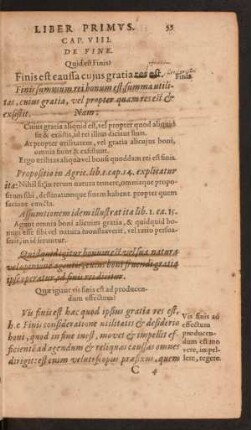 LIBER PRIMVS. 55
CAP. VIII.
DE FINE.
Quid est Finis?
Finis est caussa cujus gratia res est.
Finis
Finis summum rei bonum est, summa utili-
tas, cujus gratia, vel propter quam res est &
existit. Nam:
Cujus gratia aliquid est, vel propter quod aliquid
sit & existit, id rei illius dicitur finis.
At propter utilitatem, vel gratia alicujus boni,
omnia fiunt & existunt.
Ergo utilitas aliqua vel bonum quoddam rei est finis.
Propositio in Agric. lib. 1. cap. 14. explicatur
ita: Nihil
facta constet.
Assumtionem idem illustrat ita lib. 1. ca. 15.
Agunt omnia boni alicujus gratia, & quidquid bo-
Quæ igitur vis finis est ad producen-
dum effectum?
Vis finis est hæc quod ipsius gratia res est,
h. e. Finis consideratione utilitatis & desiderio
boni, quod in fine inest, movet & impellit ef-
ficientē ad agendum & reliquas caussas omnes
dirigit: est enim velut scopus præfixus, quem
Vis finis ad
effectum
producen-
dum est mo
vere, impel-
lere, regere.
C 4